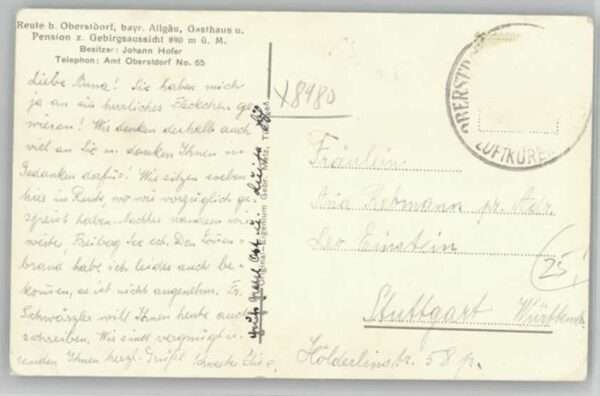 Reute b. Oberstdorf, bayr. Allgäu, Gasthaus u.
Pension z. Gebirgsaussicht 890 m ü. M.
Besitzer: Johann Hofer
Telephon: Amt Oberstdorf No. 65
Liebe Anna! Sie haben mich
ja an ein herrliches Fleckchen ge-
wiesen! Wir denken deshalb auch
viel an Sie u. danken Ihnen in
Gedanken dafür! Wir sitzen soeben
hier in Reute, wo wir vorzüglich ge-
speist haben. Nachher wandern wir
weiter, Freiberg See ect. Den Sonnen-
brand habe ich leider auch be-
kommen, es ist nicht angenehm. Frl.
Schwärzler will Ihnen heute auch
schreiben. Wir sind vergnügt u.
senden Ihnen herzl. Grüße Schwester Elise
Original-Eigentum Gebr. Metz, Tübingen
x8980
OBERSTD
LUFTKUROR
Fräulein
Anna Rebmann pr. Adr.
Leo Einstein
Stuttgart Württemb.
Hölderlinstr. 58 p.
25